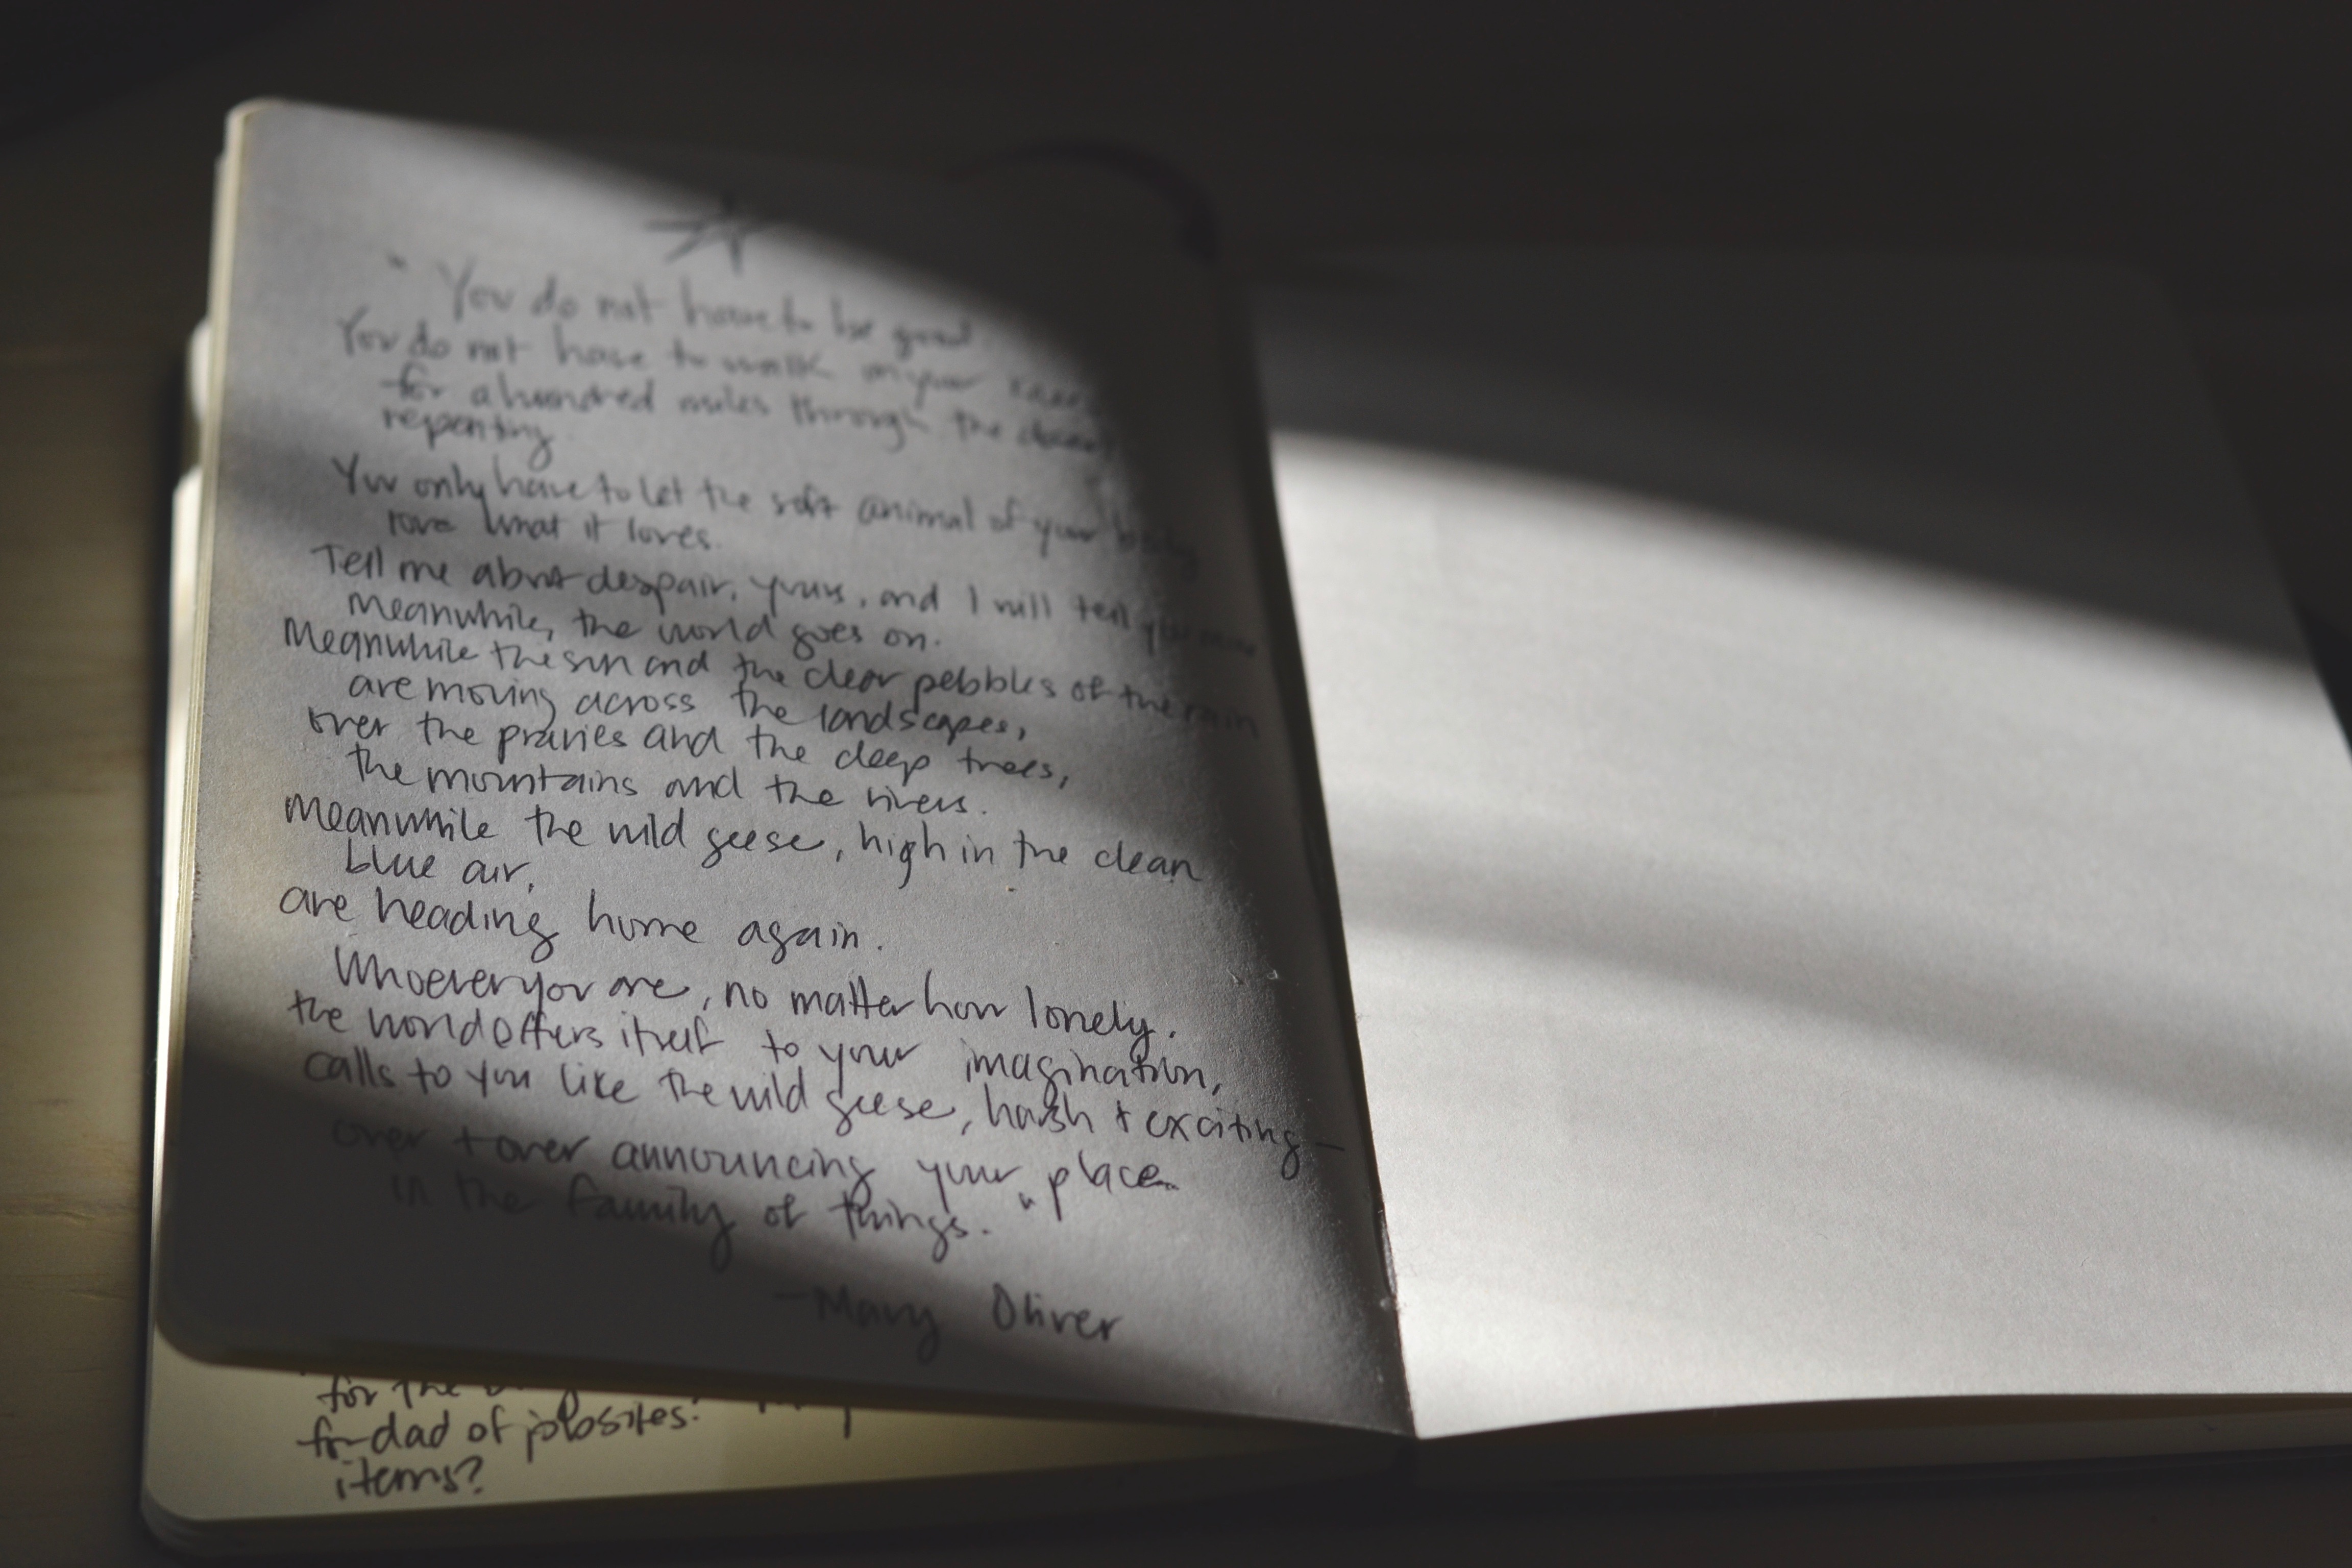 "You do not have to be good.
You do not have to walk on your knees
for a hundred miles through the desert,
repenting.
You only have to let the soft animal of your body
love what it loves.
Tell me about despair, yours, and I will tell you mine
Meanwhile, the world goes on.
Meanwhile the sun and the clear pebbles of the rain
are moving across the landscapes,
over the praries and the deep trees,
the mountains and the rivers.
Meanwhile the wild geese, high in the clean
blue air,
are heading home again.
Whoever you are, no matter how lonely,
the world offers itself to your imagination,
calls to you like the wild geese, harsh + exciting—
over + over announcing your place
in the family of things."
—Mary Oliver
for the
for dad of jobsites?
items?